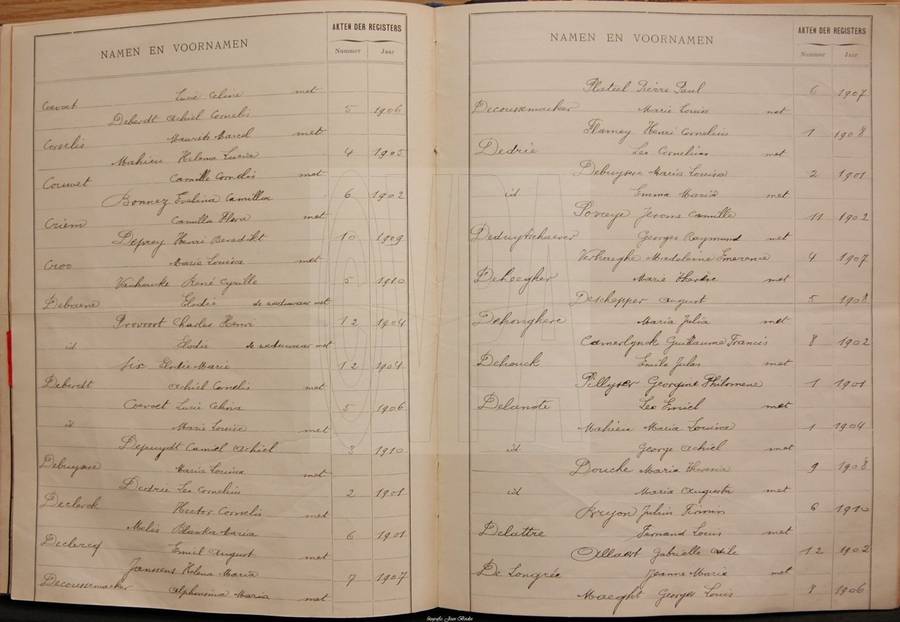 AKTEN DER REGISTERS
NAMEN EN VOORNAMEN
Nummer Jaar
Coevoet Lucie Celina met
Debaedt Achiel Cornelis 5 1906
Cornelis Maurits Marcel met
Mahieu Helena Lucia 4 1905
Couvet Camille Cornelis met
Bonnez Evelina Camillia 6 1902
Criem Camilla Flora met
Deprey Henri Benedikt 10 1909
Croo Maria Louisa met
Vanhoucke René Cyrille 5 1910
Debaene Elodie de weduwaar met
Provoost Charles Henri 12 1904
id Elodie de weduwaar met
Six Elodie Marie 12 1904
Debaedt Achiel Cornelis met
Coevoet Lucie Celina 5 1906
id Marie Louise met
Depuydt Camiel Achiel 3 1910
Debuysere Maria Louisa met
Dedrie Leo Cornelius 2 1901
Declerck Hector Cornelis met
Melis Blanka Maria 6 1901
Declercq Emiel August met
Janssens Helena Maria 7 1907
Decoussemaeker Alphonsina Maria met
AKTEN DER REGISTERS
NAMEN EN VOORNAMEN
Nummer Jaar
Platteel Pierre Paul 6 1907
Decoussemaeker Marie Louise met
Flamey Henri Cornelius 1 1908
Dedrie Leo Cornelius met
Debuysere Maria Louisa 2 1901
id Emma Maria met
Poreye Jerome Camille 11 1902
Deduytschaever Georges Raymund met
Verhaeghe Madeleine Emerence 4 1907
Deheegher Marie met
Deschepper August 5 1908
Dehonghere Maria Julia met
Camerlynck Guillaume Francis 8 1902
Dehouck Emile Jules met
Pillyser Georgine Philomene 1 1901
Delanote Leo Emiel met
Mahieu Maria Louisa 1 1904
id George Achiel met
Douche Maria 9 1908
id Maria Augusta met
Julien Firmin 6 1910
Delattre Fernand Louis met
Ollaert Gabrielle 12 1902
De Longrée Jeanne Marie met
Maeght Georges Louis 8 1906